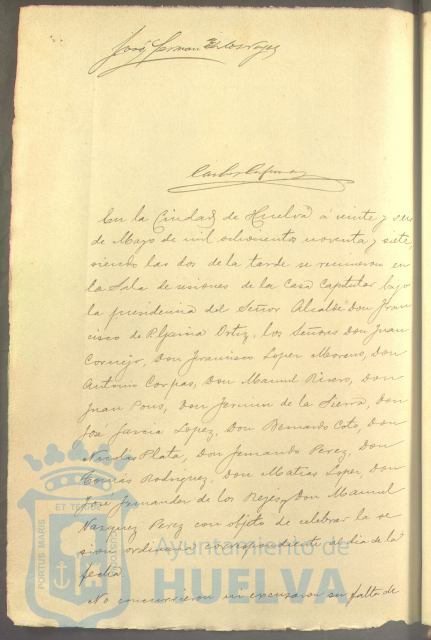 José Fernan de los Reyes
Carlos
En la Ciudad de Huelva á veinte y seis
de Mayo de mil ochocientos noventa y siete,
siendo las dos de la tarde se reunieron en
la Sala de sesiones de la Casa Capitular bajo
la presidencia del Señor Alcalde Don Fran
cisco de P. Ortiz, los Señores Don Juan
Cornejo, Don Francisco Lopez Moreno, Don
Antonio Corpas, Don Manuel Rivero, Don
Juan Pons, Don Fermin de la Sierra, Don
José Garcia Lopez, Don Bernardo Coto, Don
Nicolas Plata, Don Fernando Perez, Don
Tomás Rodriguez, Don Matias Lopez, Don
José Fernandez de los Reyes y Don Manuel
Vazquez Perez con objeto de celebrar la se
sion ordinaria correspondiente al dia de la
fecha.
No concurrieron ni excusaron su falta de
PORTUS MARIS
ET TERRAE
Ayuntamiento de
HUELVA